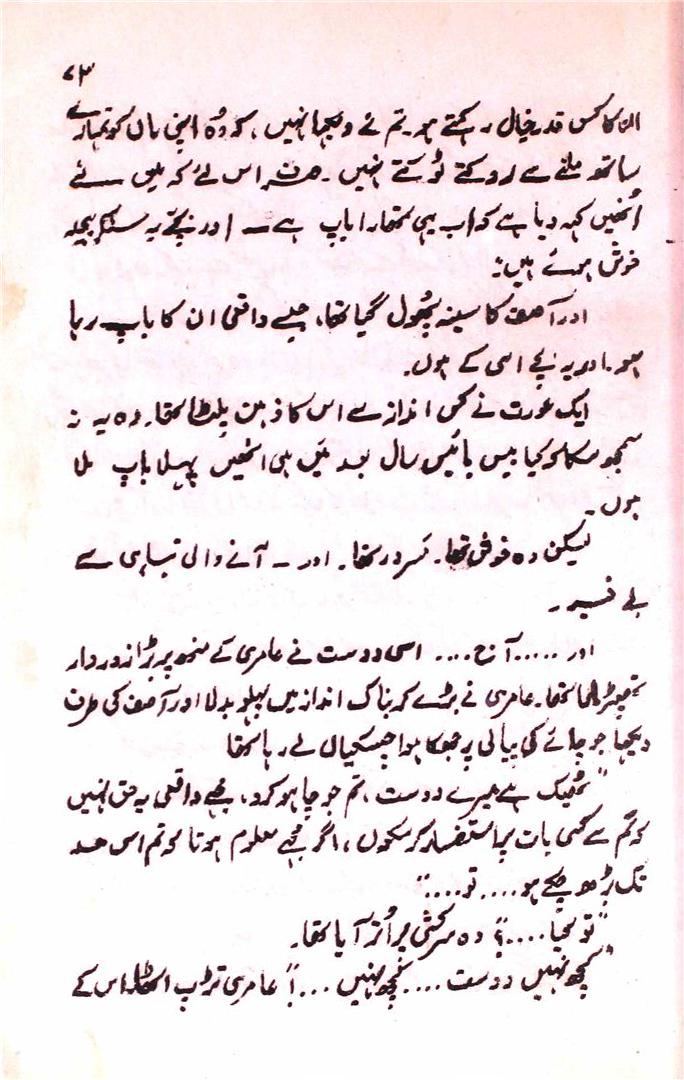 ۷۳
ان کا کس قدر خیال رکھتے ہو۔ تم نے دیکھا نہیں، کہ وُہ اپنی ماں کو تمہارے
ساتھ ملنے سے روکتے ٹوکتے نہیں۔ صرف اس لئے کہ میں نے
اُنھیں کہہ دیا ہے کہ اب یہی تمھارا باپ ہے۔ اور بچّے یہ سنکر بیحد
خوش ہوئے ہیں:
اور آصف کا سینہ پھُول گیا تھا، جیسے واقعی ان کا باپ رہا
ہو۔ اور یہ بچّے اسی کے ہوں۔
ایک عورت نے کس انداز سے اس کا ذہن پلٹا تھا۔ وہ یہ نہ
سمجھ سکا کہ کیا بیس بائیس سال بعد میں ہی انھیں پہلا باپ ملا
ہوں۔
لیکن وہ خوش تھا۔ مسرور تھا۔ اور۔ آنے والی تباہی سے
بے خبر۔
اور ..... آج .... اسی دوست نے عامری کے منھ پر بڑا زور دار
تھپڑ مارا تھا۔ عامری نے بڑے کربناک انداز میں پہلو بدلا اور آصف کی طرف
دیکھا جو چائے کی پیالی پر جھکا ہوا چسکیاں لے رہا تھا
"ٹھیک ہے میرے دوست، تم جو چاہو کرو، مجھے واقعی یہ حق نہیں
کہ تم سے کسی بات پر استفسار کر سکوں، اگر مجھے معلوم ہوتا کہ تم اس حد
تک بڑھ چکے ہو .... تو ...."
"تو کیا ....؟" وہ سرکشی پر اُتر آیا تھا۔
"کچھ نہیں دوست .... کچھ نہیں ...!" عامری تڑپ اٹھا۔ اس کے